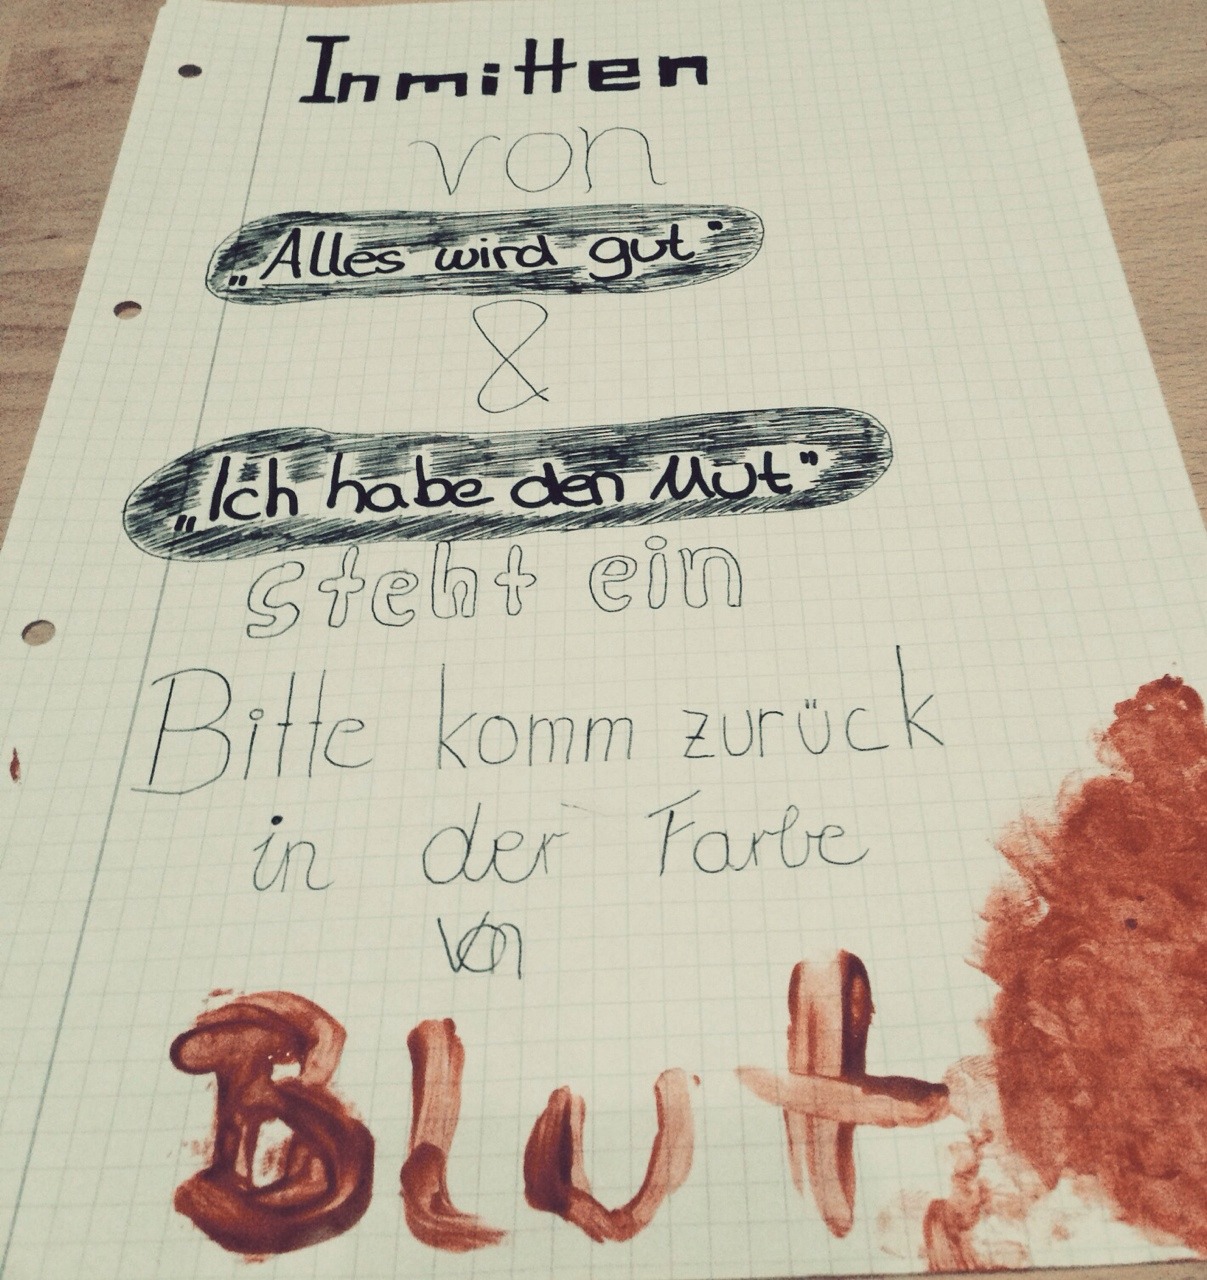 Inmitten
von
„Alles wird gut"
&
„Ich habe den Mut"
steht ein
Bitte komm zurück
in der Farbe
von
Blut